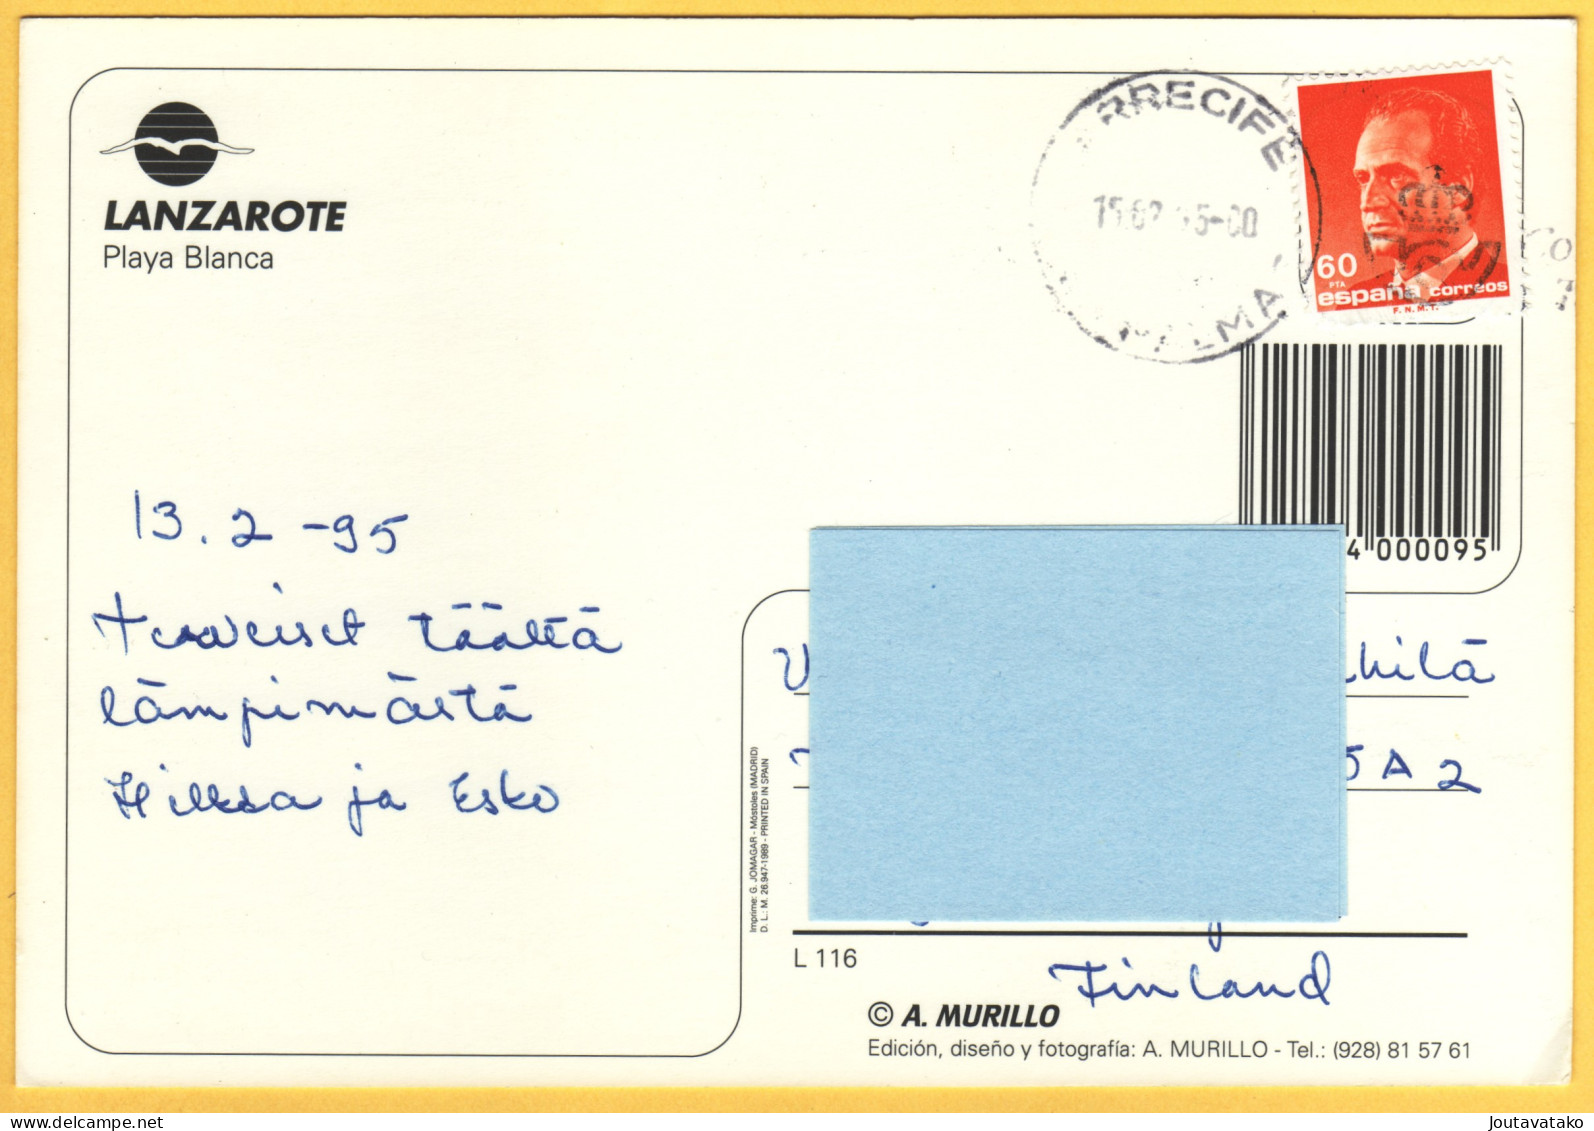 LANZAROTE
Playa Blanca
ARRECIFE
PALMA
60
PTA
españa correos
F. N. M. T.
4 000095
13.2 -95
Terveiset täältä
lämpimästä
Hilkka ja Esko
Imprime: G. JOMAGAR - Móstoles (MADRID)
D. L.: M. 26.947-1989 - PRINTED IN SPAIN
5 A 2
Finland
L 116
© A. MURILLO
Edición, diseño y fotografía: A. MURILLO - Tel.: (928) 81 57 61
Joutavatako